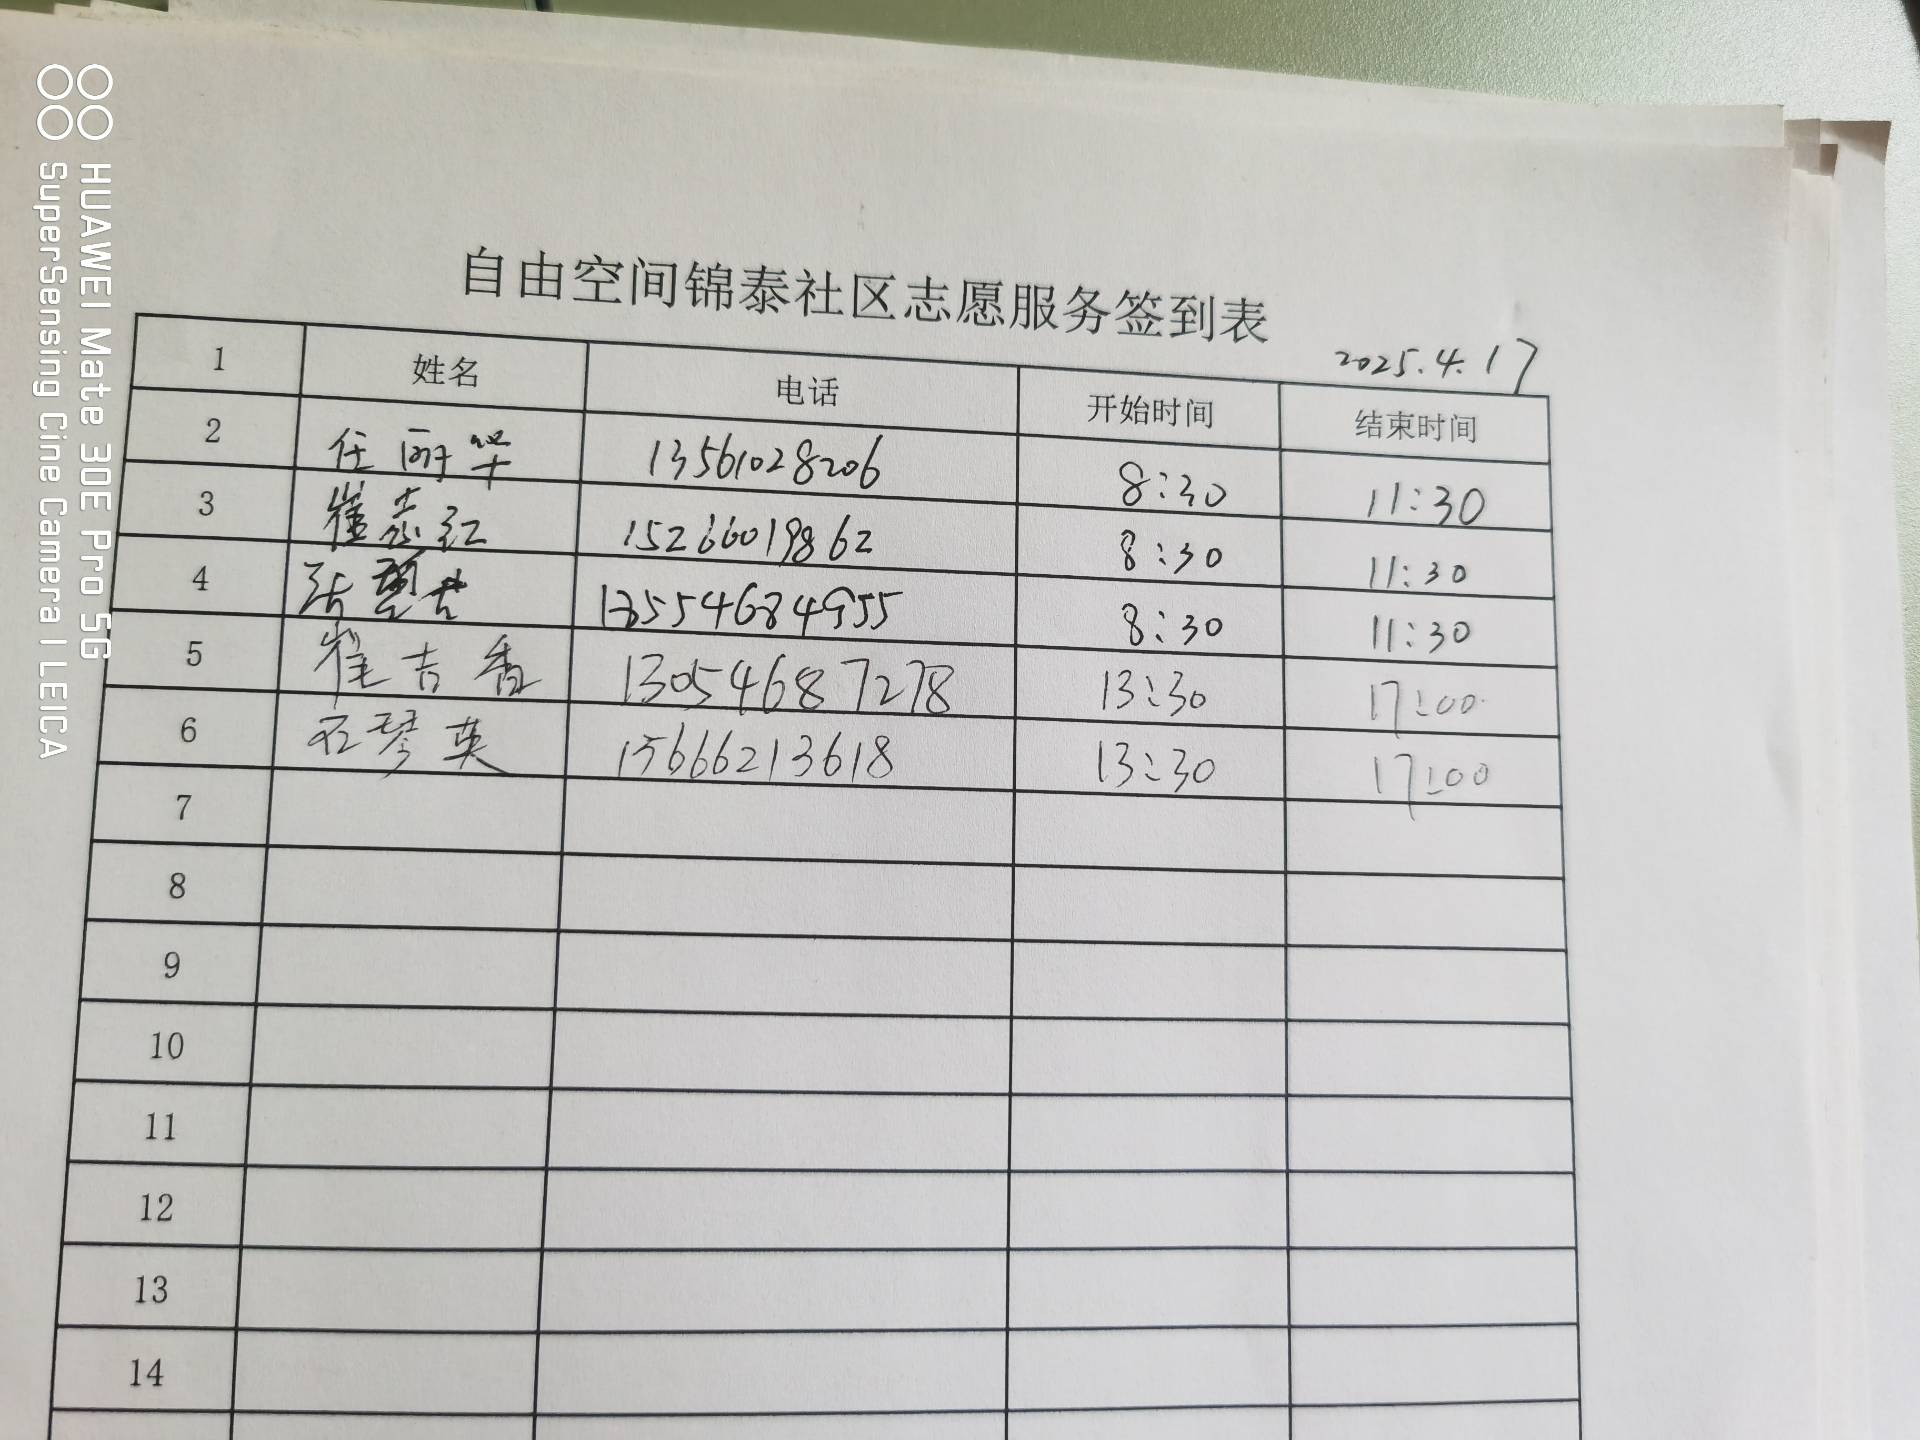 HUAWEI Mate 30E Pro 5G
SuperSensing Cine Camera | LEICA
自由空间锦泰社区志愿服务签到表
2025.4.17
1 姓名 电话 开始时间 结束时间
2 任丽华 13561028206 8:30 11:30
3 崔志红 15266019862 8:30 11:30
4 张 13554684955 8:30 11:30
5 崔吉香 13054687278 13:30 17:00
6 石琴英 15666213618 13:30 17:00
7
8
9
10
11
12
13
14